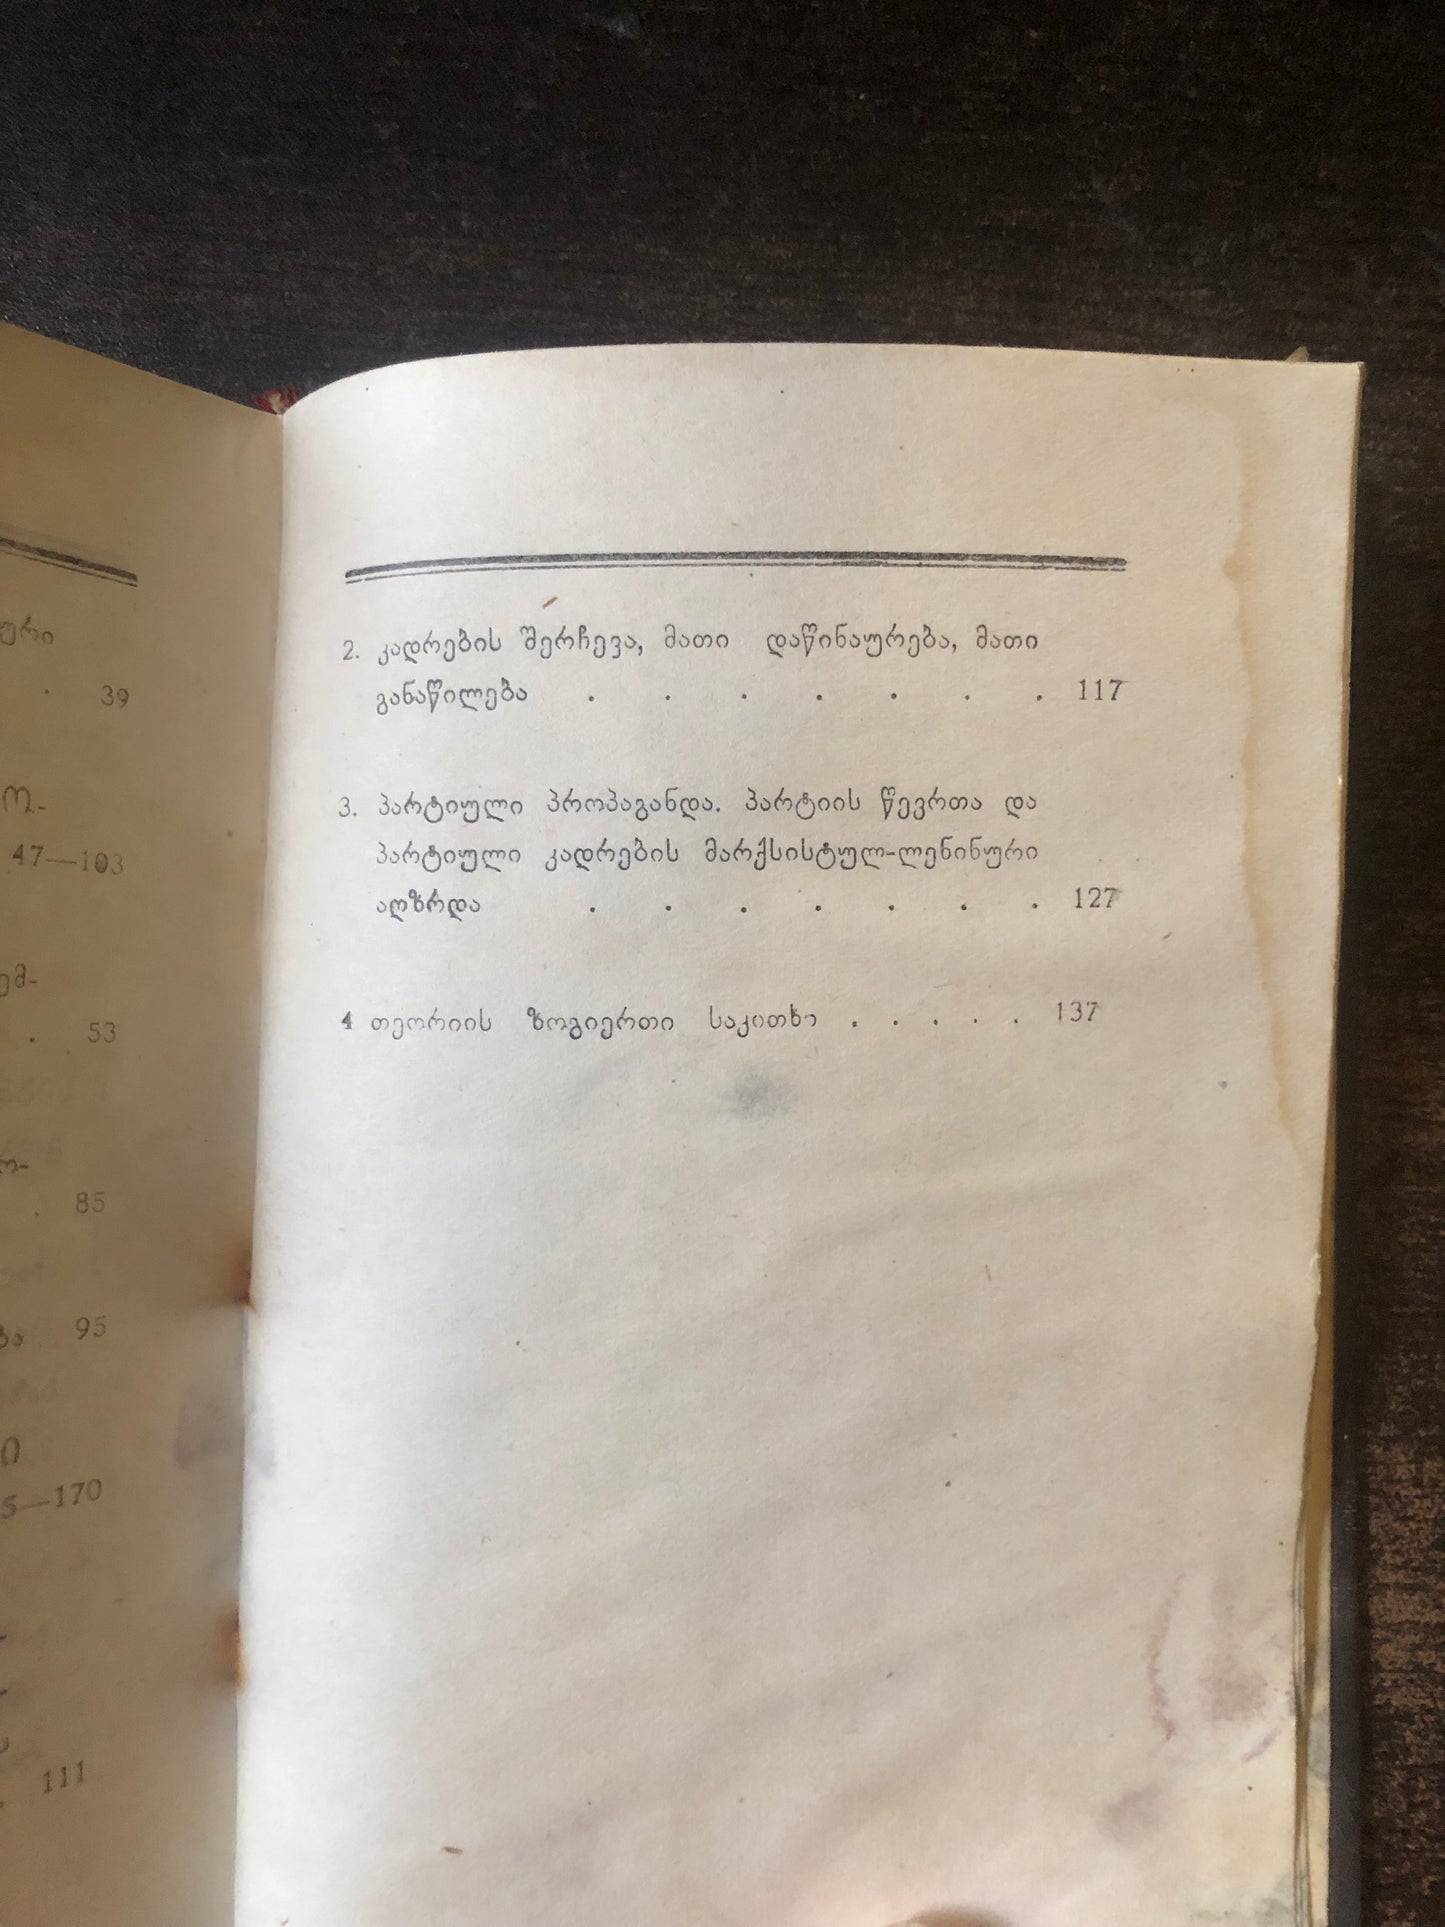 ური
. 39
ო-
47—103
ემ-
. 53
ო-
. 85
ბა 95
ი
5—170
111
2. კადრების შერჩევა, მათი დაწინაურება, მათი
განაწილება . . . . . . . 117
3. პარტიული პროპაგანდა. პარტიის წევრთა და
პარტიული კადრების მარქსისტულ-ლენინური
აღზრდა . . . . . . . 127
4 თეორიის ზოგიერთი საკითხი . . . . . 137